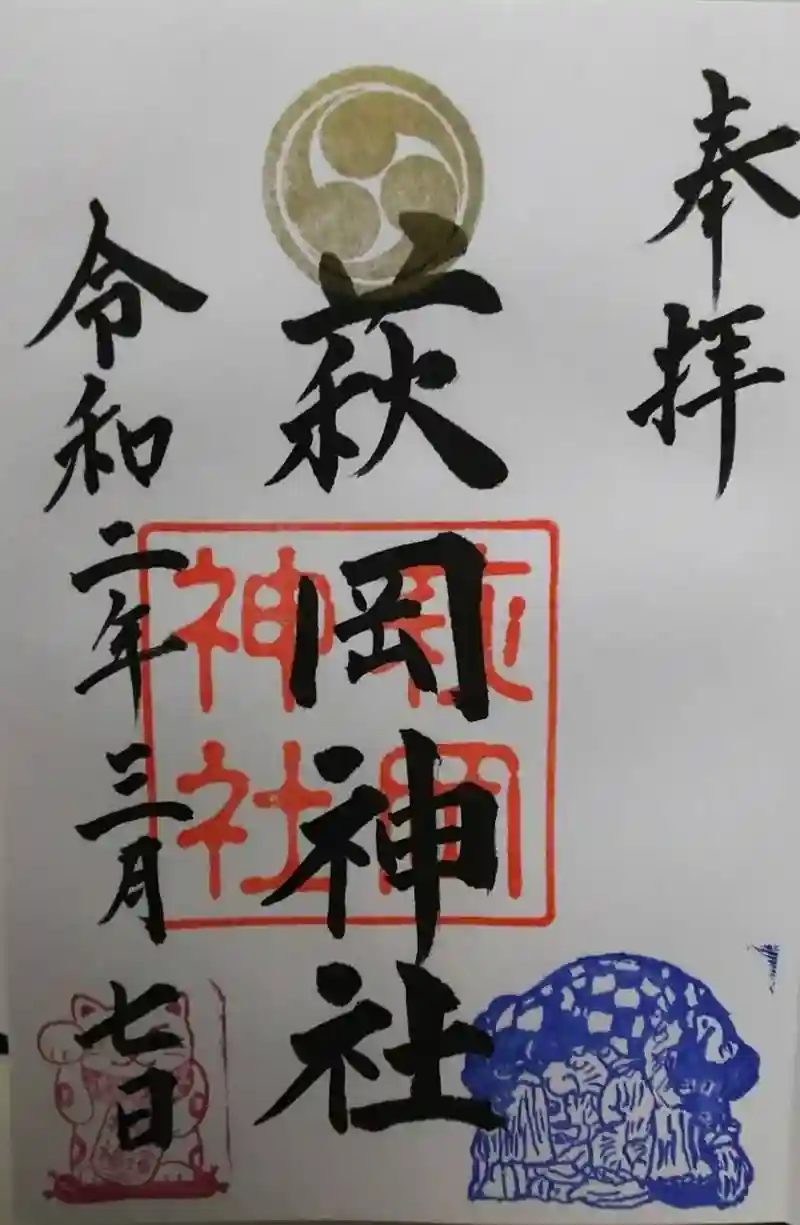 奉拝
萩岡神社
萩岡
神社
令和二年三月七日